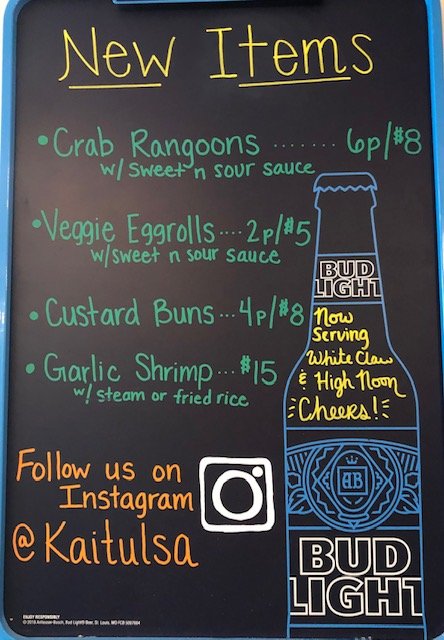 New Items
• Crab Rangoons ....... 6p/$8
w/ sweet n sour sauce
• Veggie Eggrolls.... 2p/$5
w/ sweet n sour sauce
• Custard Buns... 4p/$8
• Garlic Shrimp... $15
w/ steam or fried rice
BUD
LIGHT
Now
Serving
White Claw
& High Noon
Cheers!
AB
BUD
LIGHT
Follow us on
Instagram
@Kaitulsa
ENJOY RESPONSIBLY
© 2018 Anheuser-Busch, Bud Light® Beer, St. Louis, MO